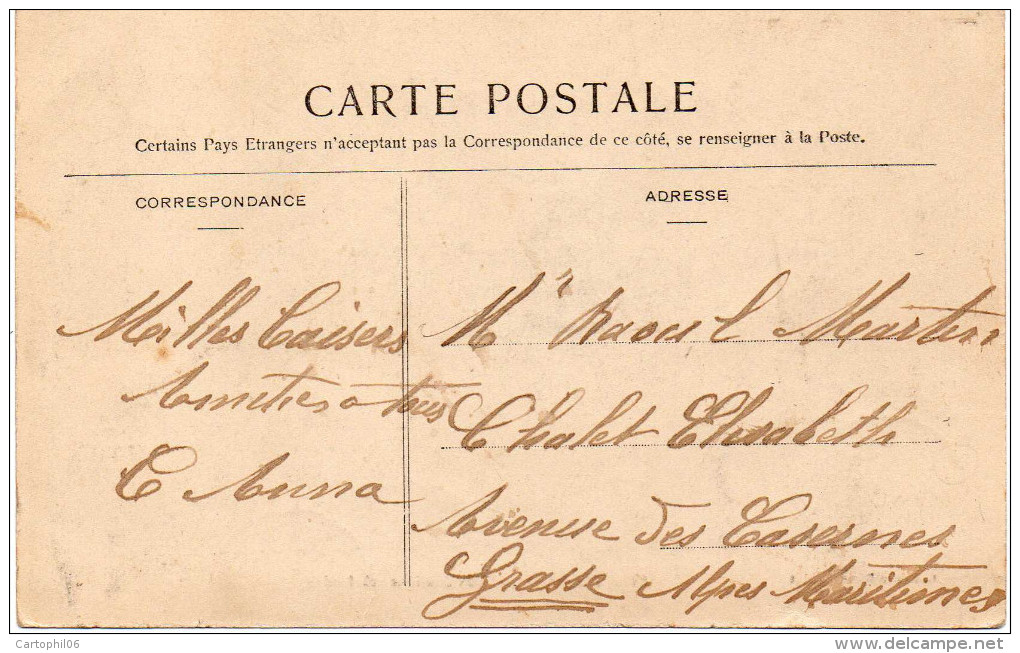 CARTE POSTALE
Certains Pays Etrangers n'acceptant pas la Correspondance de ce côté, se renseigner à la Poste.
CORRESPONDANCE
Milles Baisers
Amities a tous
E Anna
ADRESSE
Mr Raoul Martin
Chalet Elisabeth
Avenue des Casernes
Grasse Alpes Maritimes
Cartophil06
www.delcampe.net